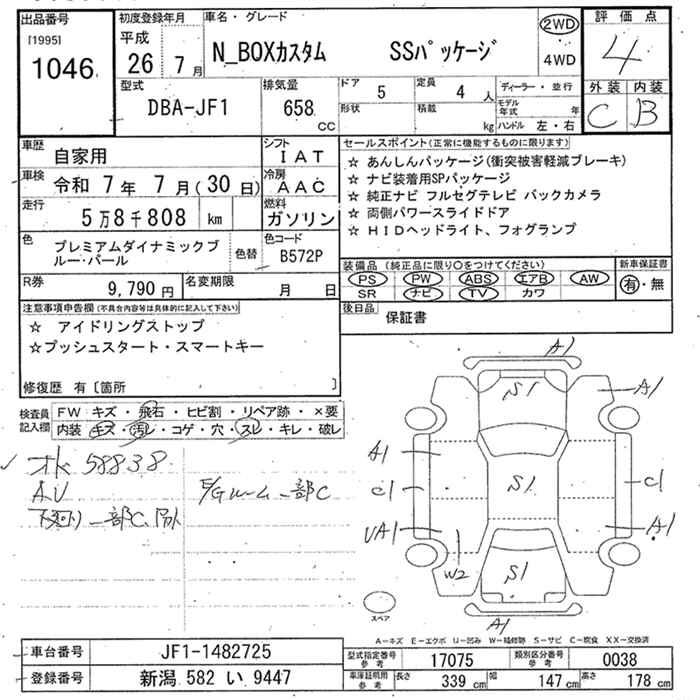 出品番号
[1995]
1046
初度登録年月
平成
26 年 7 月
車名・グレード
N_BOXカスタム SSパッケージ
2WD
4WD
評価点
4
外装 内装
C B
型式
DBA-JF1
排気量
658
CC
ドア
5
定員
4 人
形状
積載
kg
ディーラー・並行
モデル年式 年
ハンドル 左・右
車歴
自家用
シフト
IAT
車検
令和 7年 7月(30日)
冷房
AAC
走行
5万8千808 km
燃料
ガソリン
色
プレミアムダイナミックブ
ルー・パール
色替
色コード
B572P
R券
9,790 円
名変期限
月 日
セールスポイント(正常に機能するものに限ります)
☆ あんしんパッケージ(衝突被害軽減ブレーキ)
☆ ナビ装着用SPパッケージ
☆ 純正ナビ フルセグテレビ バックカメラ
☆ 両側パワースライドドア
☆ HIDヘッドライト、フォグランプ
装備品(純正品に限り○をつけてください)
PS PW ABS エアB AW
SR ナビ TV カワ
新車保証書
有・無
後日品
保証書
注意事項申告欄(不具合内容等は具体的に記入して下さい)
☆ アイドリングストップ
☆プッシュスタート・スマートキー
修復歴 有〔箇所 〕
検査員
記入欄
FW キズ・飛石・ヒビ割・リペア跡・×要
内装 キズ・汚レ・コゲ・穴・スレ・キレ・破レ
58838
A.V
下廻り一部C.
E/Gルーム一部C
A1
S1
A1
A1
C1
S1
C1
UA1
A1
W2
S1
A1
スペア
A―キズ E―エクボ U―凹み W―補修跡 S―サビ C―腐食 XX―交換済
車台番号
JF1-1482725
登録番号
新潟 582 い 9447
型式指定番号
参考
17075
類別区分番号
参考
0038
車庫証明用
参考
長さ 339 cm 幅 147 cm 高さ 178 cm